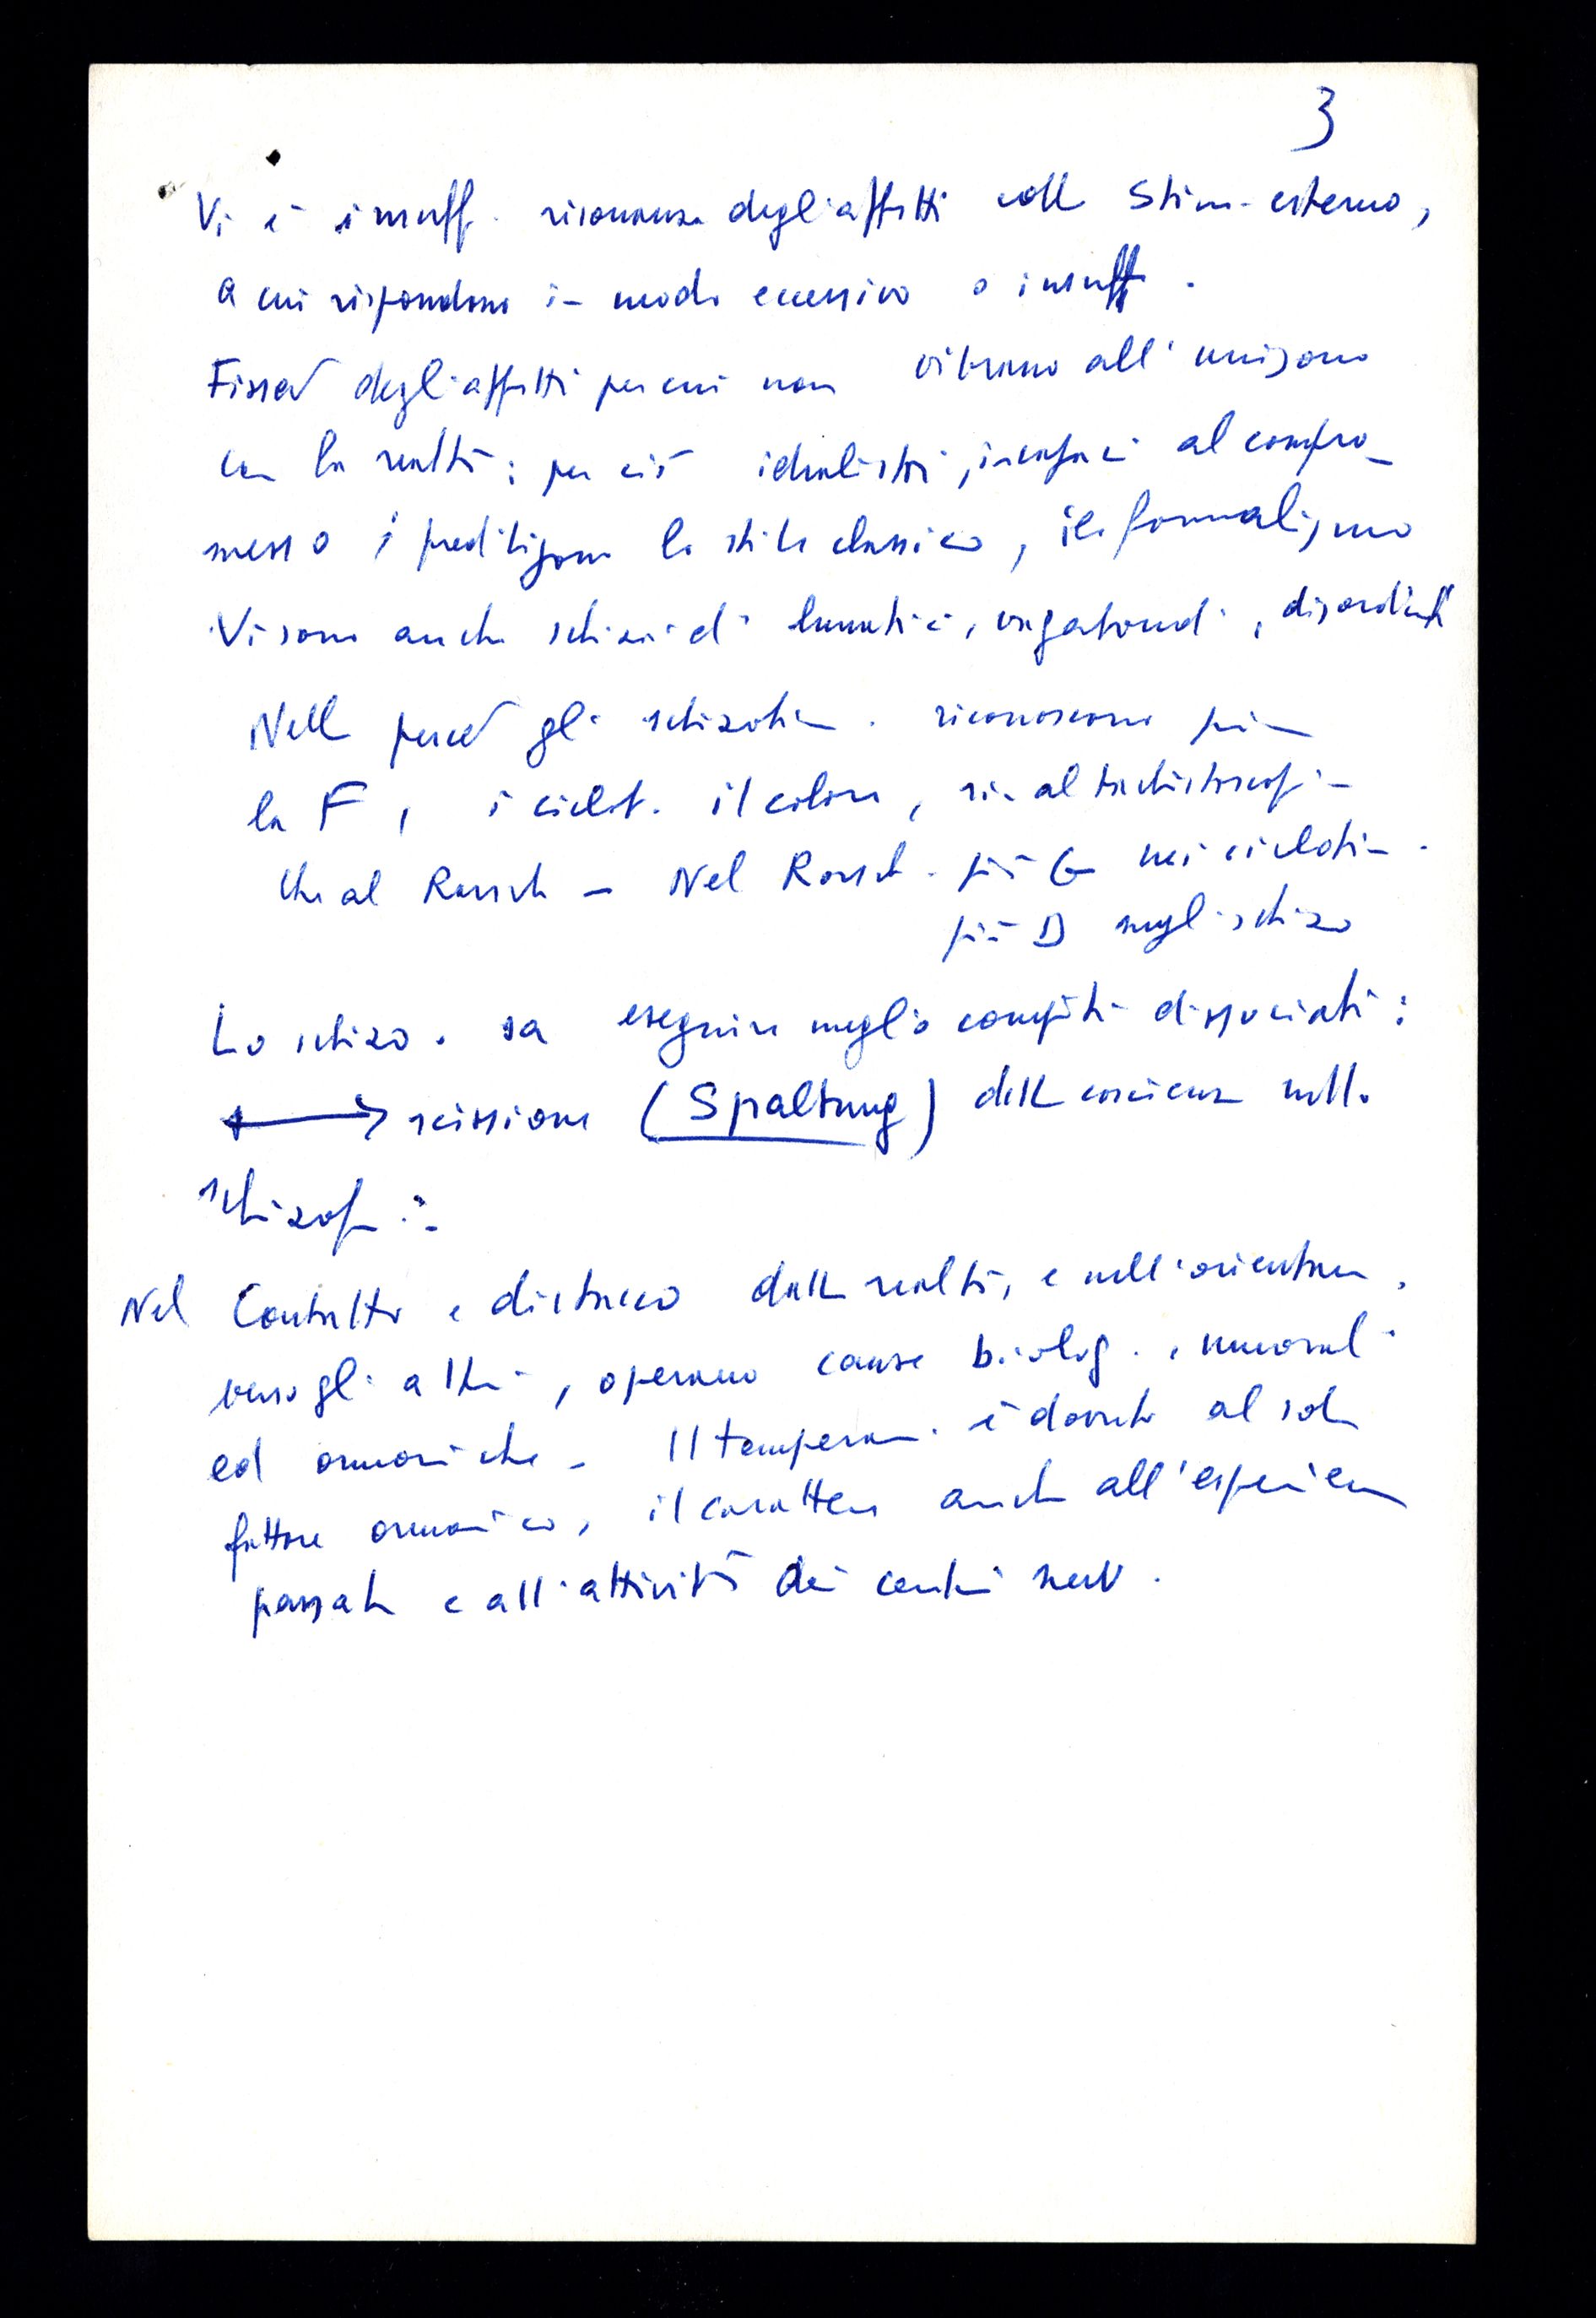 3
Vi è insuff. risonanza degli affetti collo Stim. esterno,
a cui rispondono in modo eccessivo o insuff.
Fissed degli affetti per cui non vibrano all'unisono
con la realtà; per ciò idealisti, incapaci al compro_
messo; prediligono lo stile classico, il formalismo
Vi sono anche schizoidi lunatici, vagabondi, disordinati
Nella perced gli schizotim. riconoscono più
la F, i ciclot. il colore, sia al tachistoscopio
che al Rorsch - Nel Rorsch. più G nei ciclotim.
più D negli schizo
Lo schizo. sa eseguire meglio compiti dissociati:
⟷ scissione (Spaltung) della coscienza nella
schizofr.
Nel Contatto e distacco dalla realtà, e nell'orientam.
verso gli altri, operano cause biolog., umorali
ed ormoniche - Il temperam. è dovuto al solo
fattore ormonico, il carattere anche all'esperienza
passata e all'attività dei centri nerv.